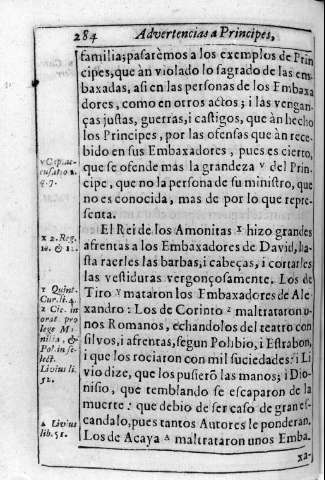 284 Advertencias a Principes,
familia; pasarèmos a los exemplos de Prin
cipes, que àn violado lo sagrado de las em-
baxadas, asi en las personas de los Embaxa
dores, como en otros actos; i làs vengan-
ças justas, guerras, i castigos, que àn hecho
los Principes, por las ofensas que àn rece-
bido en sus Embaxadores, pues es cierto,
que se ofende más la grandeza v del Prin-
cipe, que no la persona de su ministro, que
no es conocida, mas de por lo que repre-
senta.
El Rei de los Amonitas x hizo grandes
afrentas a los Embaxadores de David, has
ta raerles las barbas, i cabeças, i cortarles
las vestiduras vergonçosamente. Los de
Tiro y mataron los Embaxadores de Ale-
xandro: Los de Corinto z maltrataron u-
nos Romanos, echandolos del teatro con
silvos, i afrentas, segun Polibio, i Estrabon,
i que los rociaron con mil suciedades: i Li
vio dize, que los pusierõ las manos; i Dio-
nisio, que temblando se escaparon de la
muerte: que debio de ser caso de gran es-
candalo, pues tantos Autores le ponderan.
Los de Acaya a maltrataron unos Emba-
xa-
v Cep. ac-
cusatio 2.
q. 7.
x 2. Reg.
10. & 12.
y Quint.
Cur. li. 4.
z Cic. in
orat. pro
lege Ma-
nilia, &
Pol. in se-
lect.
Livius li.
52.
a Livius
lib. 51.